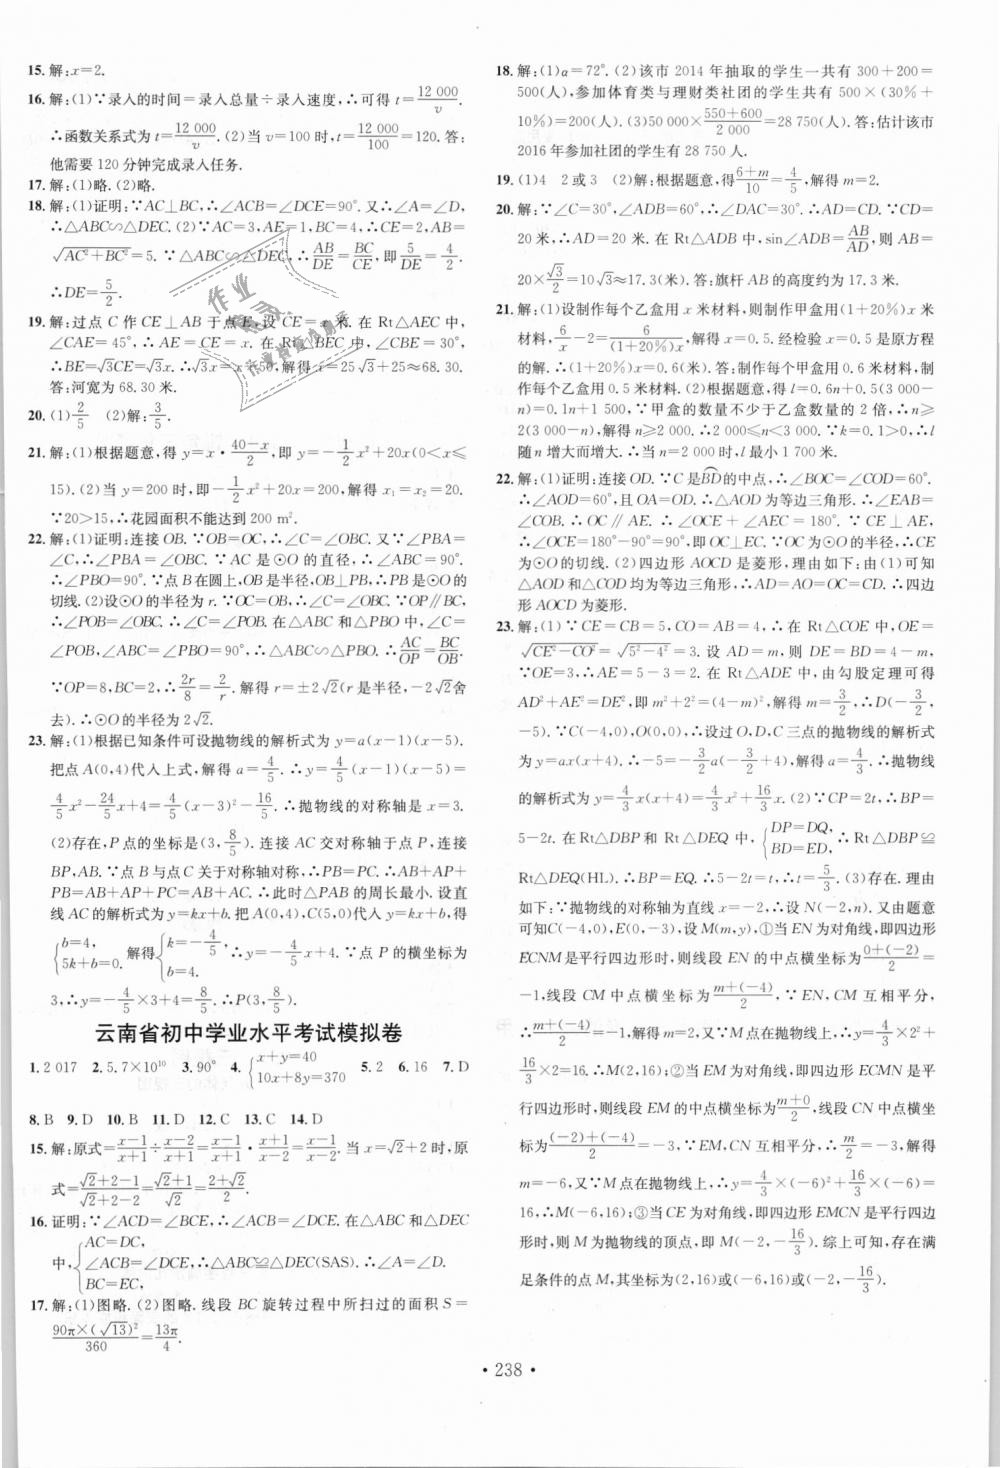 15. 解:x=2.
16. 解:(1)∵录入的时间=录入总量÷录入速度,∴可得 t=12 000/v.
∴函数关系式为 t=12 000/v. (2)当 v=100 时,t=12 000/100=120. 答:
他需要 120 分钟完成录入任务.
17. 解:(1)略. (2)略.
18. 解:(1)证明:∵AC⊥BC,∴∠ACB=∠DCE=90°. 又∵∠A=∠D,
∴△ABC∽△DEC. (2)∵AC=3,AE=1,BC=4,∴CE=2,AB=
√(AC²+BC²)=5. ∵△ABC∽△DEC,∴AB/DE=BC/CE,即5/DE=4/2.
∴DE=5/2.
19. 解:过点 C 作 CE⊥AB 于点 E,设 CE=x 米. 在 Rt△AEC 中,
∠CAE=45°,∴AE=CE=x. 在 Rt△BEC 中,∠CBE=30°,
∴BE=√3CE=√3x. ∴√3x=x+50,解得 x=25√3+25≈68.30.
答:河宽为 68.30 米.
20. (1)2/5 (2)解:3/5.
21. 解:(1)根据题意,得 y=x·(40-x)/2,即 y=-1/2x²+20x(0<x≤
15). (2)当 y=200 时,即-1/2x²+20x=200,解得 x₁=x₂=20.
∵20>15,∴花园面积不能达到 200 m².
22. 解:(1)证明:连接 OB. ∵OB=OC,∴∠C=∠OBC. 又∵∠PBA=
∠C,∴∠PBA=∠OBC. ∵AC 是⊙O 的直径,∴∠ABC=90°.
∴∠PBO=90°. ∵点 B 在圆上,OB 是半径,∴PB⊥OB,∴PB 是⊙O 的
切线. (2)设⊙O 的半径为 r. ∵OC=OB,∴∠C=∠OBC. ∵OP∥BC,
∴∠POB=∠OBC. ∴∠C=∠POB. 在△ABC 和△PBO 中,∠C=
∠POB,∠ABC=∠PBO=90°,∴△ABC∽△PBO. ∴AC/OP=BC/OB.
∵OP=8,BC=2,∴2r/8=2/r. 解得 r=±2√2(r 是半径,-2√2舍
去). ∴⊙O 的半径为 2√2.
23. 解:(1)根据已知条件可设抛物线的解析式为 y=a(x-1)(x-5).
把点 A(0,4)代入上式,解得 a=4/5. ∴y=4/5(x-1)(x-5)=
4/5x²-24/5x+4=4/5(x-3)²-16/5. ∴抛物线的对称轴是 x=3.
(2)存在,P 点的坐标是(3,8/5). 连接 AC 交对称轴于点 P,连接
BP,AB. ∵点 B 与点 C 关于对称轴对称,∴PB=PC. ∴AB+AP+
PB=AB+AP+PC=AB+AC. ∴此时△PAB 的周长最小. 设直
线 AC 的解析式为 y=kx+b. 把 A(0,4),C(5,0)代入 y=kx+b,得
{b=4, 5k+b=0. 解得{k=-4/5, b=4. ∴y=-4/5x+4. ∵点 P 的横坐标为
3,∴y=-4/5×3+4=8/5. ∴P(3,8/5).
云南省初中学业水平考试模拟卷
1. 2 017 2. 5.7×10¹⁰ 3. 90° 4. {x+y=40 10x+8y=370 5. 2 6. 16 7. D
8. B 9. D 10. B 11. D 12. C 13. C 14. D
15. 解:原式=(x-1)/(x+1)÷(x-2)/(x+1)=(x-1)/(x+1)·(x+1)/(x-2)=(x-1)/(x-2). 当 x=√2+2 时,原
式=(√2+2-1)/(√2+2-2)=(√2+1)/√2=(2+√2)/2.
16. 证明:∵∠ACD=∠BCE,∴∠ACB=∠DCE. 在△ABC 和△DEC
中,{AC=DC, ∠ACB=∠DCE, BC=EC, ∴△ABC≌△DEC(SAS). ∴∠A=∠D.
17. 解:(1)图略. (2)图略. 线段 BC 旋转过程中所扫过的面积 S=
90π×(√13)²/360=13π/4.
18. 解:(1)α=72°. (2)该市 2014 年抽取的学生一共有 300+200=
500(人),参加体育类与理财类社团的学生共有 500×(30%+
10%)=200(人). (3)50 000×(550+600)/2 000=28 750(人). 答:估计该市
2016 年参加社团的学生有 28 750 人.
19. (1)4 2或3 (2)解:根据题意,得(6+m)/10=4/5,解得 m=2.
20. 解:∵∠C=30°,∠ADB=60°,∴∠DAC=30°. ∴AD=CD. ∵CD=
20 米,∴AD=20 米. 在 Rt△ADB 中,sin∠ADB=AB/AD,则 AB=
20×√3/2=10√3≈17.3(米). 答:旗杆 AB 的高度约为 17.3 米.
21. 解:(1)设制作每个乙盒用 x 米材料,则制作甲盒用(1+20%)x 米
材料,6/x-2=6/((1+20%)x),解得 x=0.5. 经检验 x=0.5 是原方程
的解. ∴(1+20%)x=0.6(米). 答:制作每个甲盒用 0.6 米材料;
制作每个乙盒用 0.5 米材料. (2)根据题意,得 l=0.6n+0.5(3 000-
n)=0.1n+1 500,∵甲盒的数量不少于乙盒数量的 2 倍,∴n≥
2(3 000-n),解得 n≥2 000. ∴2 000≤n<3 000. ∵k=0.1>0,∴l
随 n 增大而增大. ∴当 n=2 000 时,l 最小 1 700 米.
22. 解:(1)证明:连接 OD. ∵C 是BD的中点,∴∠BOC=∠COD=60°.
∴∠AOD=60°,且 OA=OD. ∴△AOD 为等边三角形. ∴∠EAB=
∠COB. ∴OC∥AE. ∴∠OCE+∠AEC=180°. ∵CE⊥AE,
∴∠OCE=180°-90°=90°,即 OC⊥EC. ∵OC 为⊙O 的半径,∴CE
为⊙O 的切线. (2)四边形 AOCD 是菱形,理由如下:由(1)可知
△AOD 和△COD 均为等边三角形,∴AD=AO=OC=CD. ∴四边
形 AOCD 为菱形.
23. 解:(1)∵CE=CB=5,CO=AB=4,∴在 Rt△COE 中,OE=
√(CE²-CO²)=√(5²-4²)=3. 设 AD=m,则 DE=BD=4-m,
∵OE=3,∴AE=5-3=2. 在 Rt△ADE 中,由勾股定理可得
AD²+AE²=DE²,即 m²+2²=(4-m)²,解得 m=3/2,∴D(-3/2,
-5). ∵C(-4,0),O(0,0),∴设过 O,D,C 三点的抛物线的解析式
为 y=ax(x+4). ∴-5=-3/2a(-3/2+4). ∴a=4/3. ∴抛物线
的解析式为 y=4/3x(x+4)=4/3x²+16/3x. (2)∵CP=2t,∴BP=
5-2t. 在 Rt△DBP 和 Rt△DEQ 中,{DP=DQ, BD=ED, ∴Rt△DBP≌
Rt△DEQ(HL). ∴BP=EQ. ∴5-2t=t,∴t=5/3. (3)存在. 理由
如下:∵抛物线的对称轴为直线 x=-2,∴设 N(-2,n). 又由题意
可知C(-4,0),E(0,-3),设 M(m,y),①当 EN 为对角线,即四边形
ECNM 是平行四边形时,则线段 EN 的中点横坐标为(0+(-2))/2=
-1,线段 CM 中点横坐标为(m+(-4))/2,∵EN,CM 互相平分,
∴(m+(-4))/2=-1,解得 m=2,又∵M 点在抛物线上,∴y=4/3×2²+
16/3×2=16. ∴M(2,16);②当 EM 为对角线,即四边形 ECMN 是平
行四边形时,则线段 EM 的中点横坐标为(m+0)/2,线段 CN 中点横坐
标为((-2)+(-4))/2=-3,∵EM,CN 互相平分,∴m/2=-3,解得
m=-6,又∵M 点在抛物线上,∴y=4/3×(-6)²+16/3×(-6)=
16,∴M(-6,16);③当 CE 为对角线,即四边形 EMCN 是平行四边
形时,则 M 为抛物线的顶点,即 M(-2,-16/3). 综上可知,存在满
足条件的点 M,其坐标为(2,16)或(-6,16)或(-2,-16/3).
· 238 ·